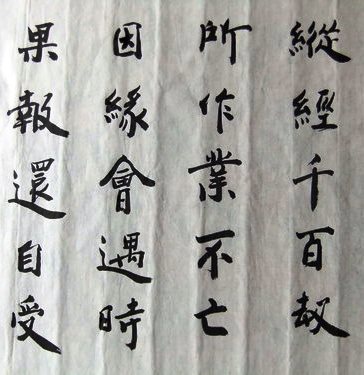 縱經千百劫
所作業不亡
因緣會遇時
果報還自受